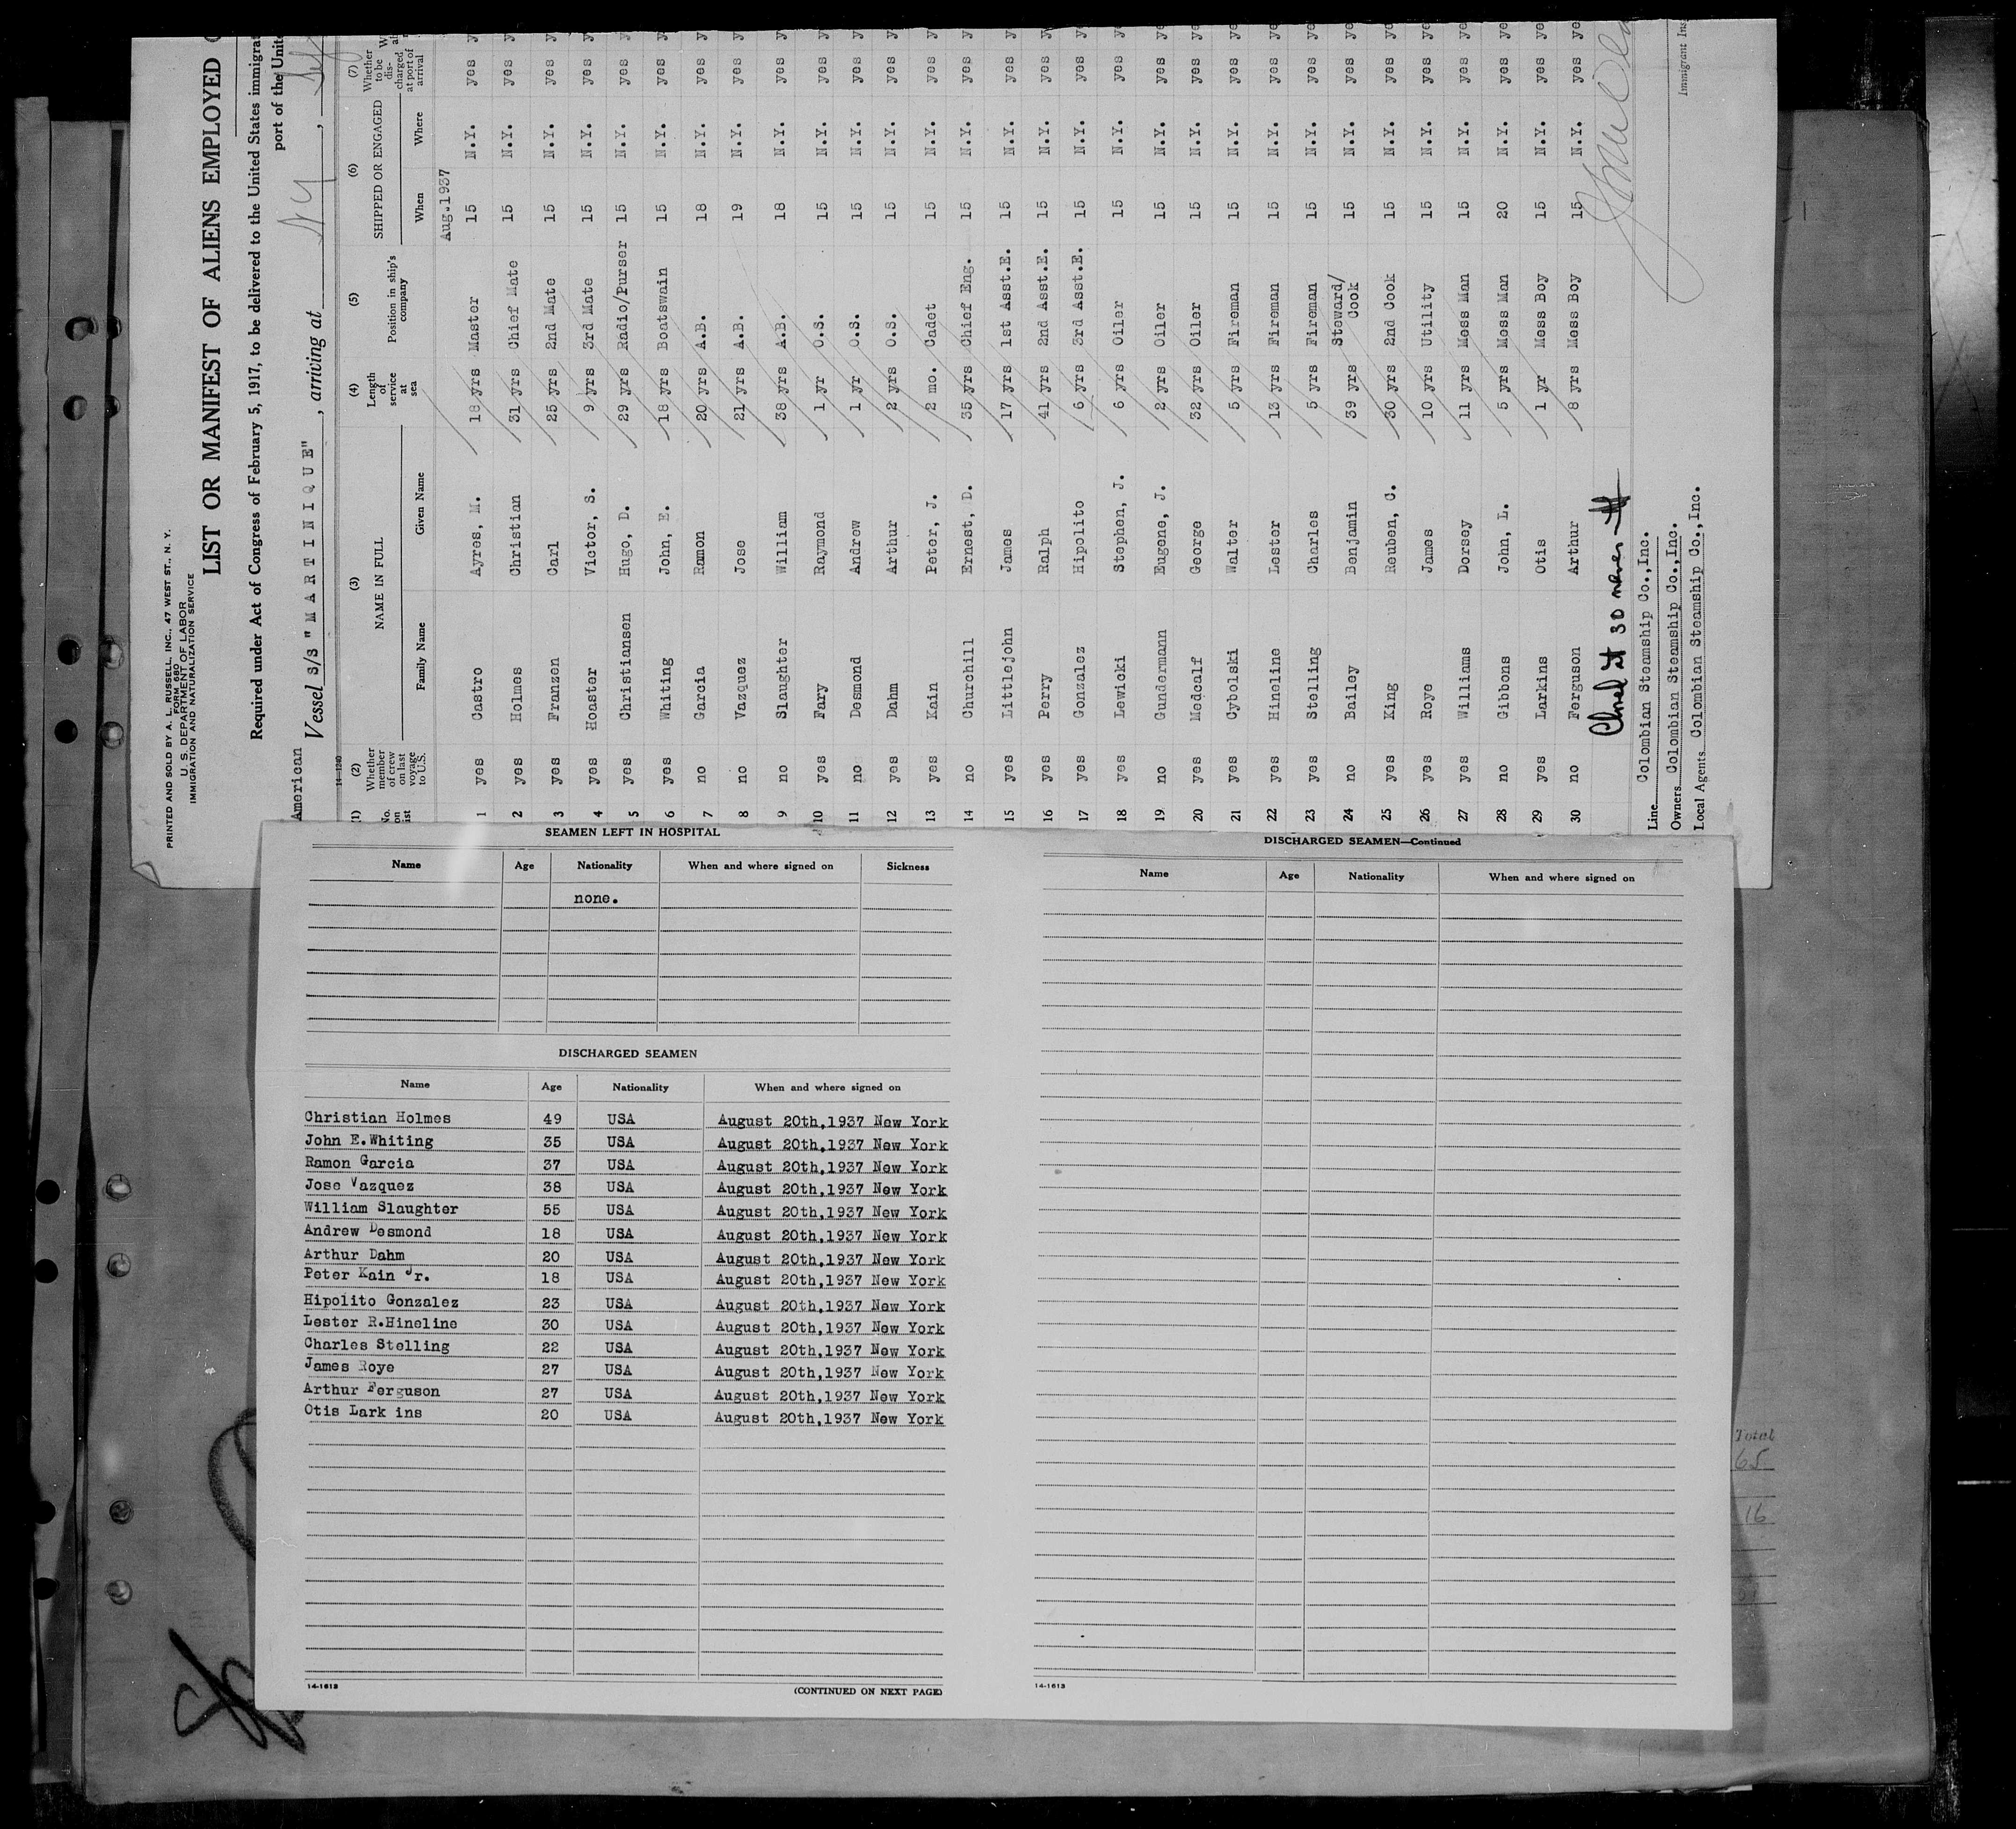 PRINTED AND SOLD BY A. L. RUSSELL, INC., 47 WEST ST., N. Y.
FORM 680
U. S. DEPARTMENT OF LABOR
IMMIGRATION AND NATURALIZATION SERVICE
LIST OR MANIFEST OF ALIENS EMPLOYED
Required under Act of Congress of February 5, 1917, to be delivered to the United States immigrat
port of the Unite
American
Vessel s/s "MARTINIQUE", arriving at NY,
14-1240
(1) (2) (3) (4) (5) (6) (7)
No. on list Whether member of crew on last voyage to U.S. NAME IN FULL Length of service at sea Position in ship's company SHIPPED OR ENGAGED Whether to be discharged at port of arrival
Family Name Given Name When Where
Aug.1937
1 yes Castro Ayres, M. 18 yrs Master 15 N.Y. yes y
2 yes Holmes Christian 31 yrs Chief Mate 15 N.Y. yes ye
3 yes Franzen Carl 25 yrs 2nd Mate 15 N.Y. yes y
4 yes Hoaster Victor, S. 9 yrs 3rd Mate 15 N.Y. yes ye
5 yes Christiansen Hugo, D. 29 yrs Radio/Purser 15 N.Y. yes y
6 yes Whiting John, E. 18 yrs Boatswain 15 N.Y. yes ye
7 no Garcia Ramon 20 yrs A.B. 18 N.Y. yes y
8 no Vazquez Jose 21 yrs A.B. 19 N.Y. yes y
9 no Slaughter William 38 yrs A.B. 18 N.Y. yes ye
10 yes Fary Raymond 1 yr O.S. 15 N.Y. yes ye
11 no Desmond Andrew 1 yr O.S. 15 N.Y. yes ye
12 yes Dahm Arthur 2 yrs O.S. 15 N.Y. yes y
13 yes Kain Peter, J. 2 mo. Cadet 15 N.Y. yes ye
14 no Churchill Ernest, D. 35 yrs Chief Eng. 15 N.Y. yes ye
15 yes Littlejohn James 17 yrs 1st Asst.E. 15 N.Y. yes y
16 yes Perry Ralph 41 yrs 2nd Asst.E. 15 N.Y. yes ye
17 yes Gonzalez Hipolito 6 yrs 3rd Asst.E. 15 N.Y. yes y
18 yes Lewicki Stephen, J. 6 yrs Oiler 15 N.Y. yes ye
19 no Gundermann Eugene, J. 2 yrs Oiler 15 N.Y. yes ye
20 yes Medcalf George 32 yrs Oiler 15 N.Y. yes ye
21 yes Cybolski Walter 5 yrs Fireman 15 N.Y. yes ye
22 yes Hineline Lester 13 yrs Fireman 15 N.Y. yes ye
23 yes Stelling Charles 5 yrs Fireman 15 N.Y. yes ye
24 no Bailey Benjamin 39 yrs Steward/ Cook 15 N.Y. yes ye
25 yes King Reuben, C. 30 yrs 2nd Cook 15 N.Y. yes ye
26 yes Roye James 10 yrs Utility 15 N.Y. yes ye
27 yes Williams Dorsey 11 yrs Mess Man 15 N.Y. yes ye
28 no Gibbons John, L. 5 yrs Mess Man 20 N.Y. yes ye
29 yes Larkins Otis 1 yr Mess Boy 15 N.Y. yes ye
30 no Ferguson Arthur 8 yrs Mess Boy 15 N.Y. yes ye
Closed at 30 names
Line Colombian Steamship Co.,Inc.
Owners Colombian Steamship Co.,Inc.
Local Agents Colombian Steamship Co.,Inc.
Immigrant Ins
SEAMEN LEFT IN HOSPITAL
Name Age Nationality When and where signed on Sickness
none.
DISCHARGED SEAMEN
Name Age Nationality When and where signed on
Christian Holmes 49 USA August 20th,1937 New York
John E.Whiting 35 USA August 20th,1937 New York
Ramon Garcia 37 USA August 20th,1937 New York
Jose Vazquez 38 USA August 20th,1937 New York
William Slaughter 55 USA August 20th,1937 New York
Andrew Desmond 18 USA August 20th,1937 New York
Arthur Dahm 20 USA August 20th,1937 New York
Peter Kain Jr. 18 USA August 20th,1937 New York
Hipolito Gonzalez 23 USA August 20th,1937 New York
Lester R.Hineline 30 USA August 20th,1937 New York
Charles Stelling 22 USA August 20th,1937 New York
James Roye 27 USA August 20th,1937 New York
Arthur Ferguson 27 USA August 20th,1937 New York
Otis Lark ins 20 USA August 20th,1937 New York
14-1613
(CONTINUED ON NEXT PAGE)
DISCHARGED SEAMEN—Continued
Name Age Nationality When and where signed on
14-1613
Total
65
16